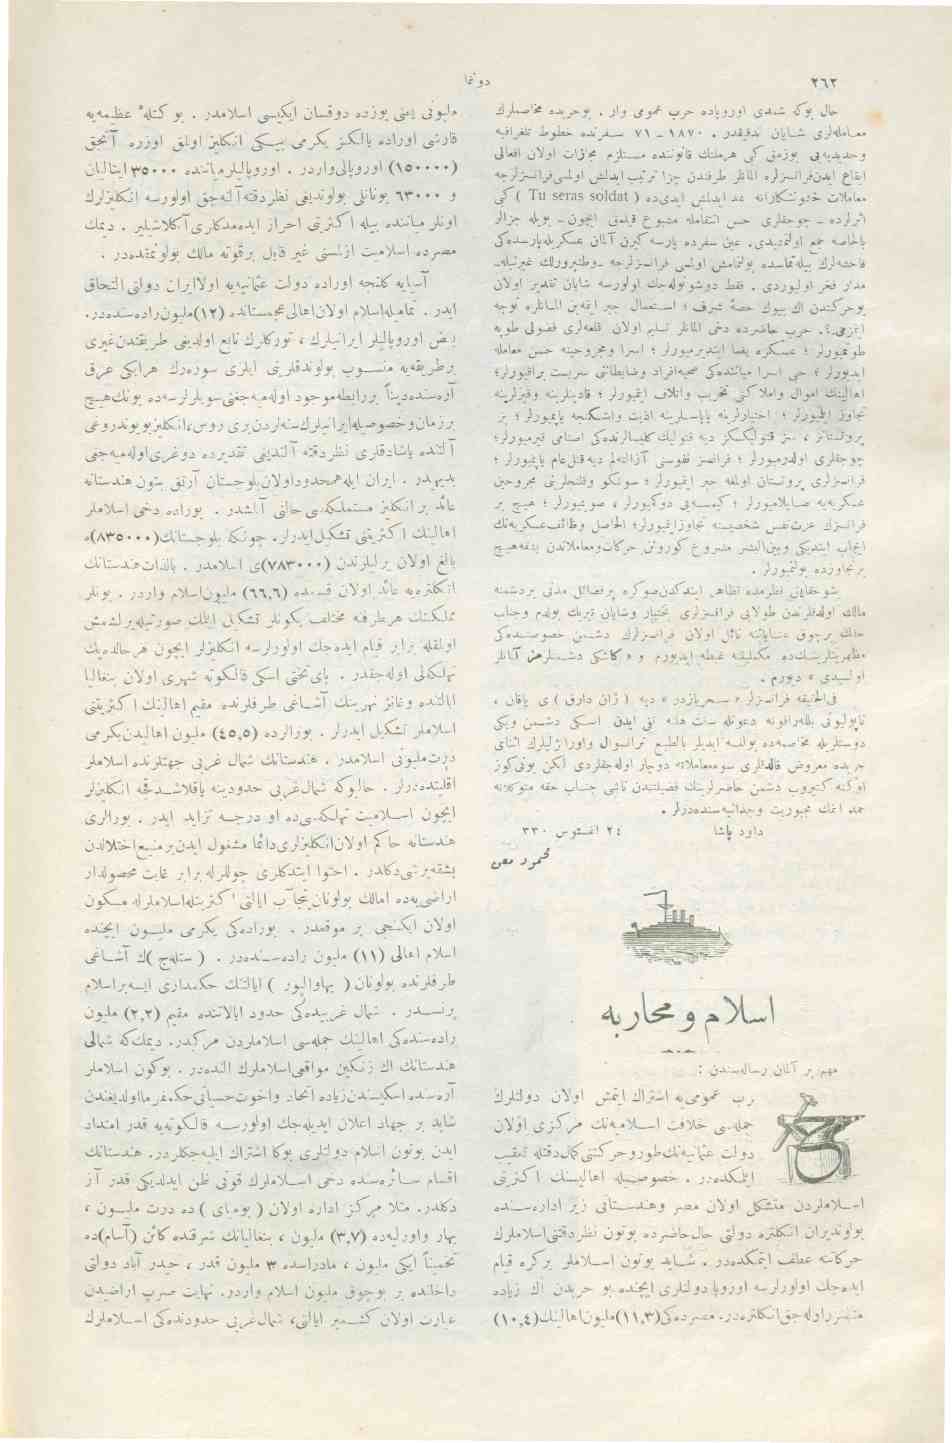 ٢٦٢
دوننما
حال بو كه شمدى اوروپاده حرب عمومى وار . بو حربده مخاصملرك
معامله‌لرى شايان تدقيقدر . ١٨٧٠ ـ ٧١ سفرنده خطوط تلغرافيه
وحديديه‌يى بوزمق كبى هرملتك قانوننده مستلزم مجازات اولان افعالى
ايقاع ايدن فرانسزلره آلمانلر طرفندن جزا ترتيب ايدلمش اولمسى فرانسزلرجه
معاملات خونخوارانه عد ايدلمش ايدى‌ده ( Tu seras soldat ) كبى
اثرلرده ـ چوجقلرى حس انتقامله مشبوع قيلمق ايچون ـ بويله جزالر
بالخاصه جمع اولنمه‌ديدى. عين سفرده پارسه كيرن آلمان عسكريله پارسده‌كى
فاحشه‌لرك بيله تماسده بولنمامش اولمسى فرانسزلرجه ـ وطنپرورلك غيرتيله ـ
مدار فخر اوليوردى . فقط دوشونوله‌جك اولورسه شايان تقدير اولان
بو حركتدن اك بيوك حصهٔ شرف ؛ استعمال جبر ايتمه‌ين آلمانلره توجه
ايتمزمى؟. حرب حاضرده دخى آلمانلر تسليم اولان قلعه‌لرى فضولى طوپه
طوتميورلر ؛ عسكره يغما ايتديرميورلر ؛ اسرا ومجروحينه حسن معامله
ايديورلر ؛ حتى اسرا مياننده‌كى صحيه افراد وضابطاننى سربست براقيورلر؛
اهالينك اموال واملاكنى تخريب واتلاف ايتميورلر ؛ قادينلرينه وقيزلرينه
تجاوز ايتميورلر ؛ اختيارلرينه پاپاسلرينه اذيت واشكنجه ياپميورلر ؛ بز
پروتستانز ، سز قتوليكسكز ديه قتوليك كليسالرنده‌كى اصنامى قيرميورلر؛
چوجقلرى اولدرميورلر ؛ فرانسز نفوسنى آزالتملم ديه قتل عام ياپميورلر ؛
فرانسزلرى پروتستان اولمغه جبر ايتميورلر ؛ سونكو وقلنجلرينى مجروحين
عسكريه‌يه صاپلاميورلر ؛ كيمسه‌يى دوكميورلر ، صويميورلر ؛ هيچ بر
فرانسزك عزت نفس شخصيسنه تجاوز ايتميورلر؛ الحاصل وظائف عسكريه‌نك
ايجاب ايتديكى وبين البشر مشروع كورولن حركات ومعاملاتدن بشقه هيچ
بر تجاوزده بولنميورلر .
شو حقايق نظرمده تظاهر ايتدكدن صوكره بر فضائل مدنى بر دشمنه
مالك اولدقلرندن طولايى فرانسزلرى بختيار وشايان تبريك بولدم وجناب
حقك بر چوق احساناتنه نائل اولان فرانسزلرك دشمن خصوصنده‌كى
مظهريتلرينك‌ده مكمليتنه غبطه ايديورم و « كاشكى دشمنلرمز آلمانلر
اولسيدى » ديورم .
فى الحقيقه فرانسزلر « سحربازدر » ديه ( ژان دارق ) ى ياقان ،
ناپوليونى بيله براقونه دعوتله سنت هلنه نفى ايدن اسكى دشمن ويكى
دوستلريله مخاصمه‌ده بولنسه ايديلر بالطبع ترانسوال واورانژليلرك اثناى
حربده معروض قالدقلرى سوء معاملاته دوچار اوله‌جقلردى لكن بونى كوز
اوكنه كتيروب دشمن حاضرلرينك فضيلتندن ناشى جناب حقه متوكلانه
حمد ايتمك مجبوريت وجدانيه‌سنده‌درلر .
داود پاشا ٢٤ اغستوس ٣٣٠
محمود معين
اسلام و محاربه
مهم بر آلمان رساله‌سندن :
حرب عمومى‌يه اشتراك ايتمش اولان دولتلرك
جمله‌سى خلافت اسلاميه‌نك مركزى اولان
دولت عثمانيه‌نك طور وحركتنى كمال دقتله تعقيب
ايتمكده‌در . خصوصيله اهاليسنك اكثريتى
اسلاملردن متشكل اولان مصر وهندستانى زير اداره‌سنده
بولونديران انكلتره دولتى حال حاضرده بوتون نظر دقتنى اسلاملرك
حركاتنه عطف ايتمكده‌در . شايد بوتون اسلاملر بركره قيام
ايده‌جك اولورلرسه اوروپا دولتلرى ايچنده بو حربدن اك زياده
متضرر اوله‌جق انكلتره‌در. مصرده‌كى (١١,٣) مليون اهالينك (١٠,٤)
مليونى يعنى يوزده دوقسان ايكيسى اسلامدر . بو كتلهٔ عظيمه‌يه
قارشى اوراده يالكز يكرمى بيك انكليز اولمق اوزره آنجق
(١٥٠٠٠٠) اوروپالى واردر . اوروپاليلر مياننده ٣٥٠٠٠ ايتاليان
و ٦٣٠٠٠ يونانلى بولونديغى نظر دقته آلنه‌جق اولورسه انكليزلرك
اونلر مياننده بيله اكثريتى احراز ايده‌مدكلرى آكلاشيلير . ديمك
مصرده اسلاميت ازلمسى غير قابل بر قوته مالك بولونمقده‌در .
آسيايه كلنجه اوراده دولت عثمانيه‌يه اولا ايران دولتى التحاق
ايدر . تماميله اسلام اولان اهالى عجمستانده (١٢) مليون راده‌سنده‌در.
بعض اوروپاليلر ايرانيلرك ، توركلرك تابع اولديغى طريقتدن غيرى
برطريقه‌يه منسوب بولوندقلرينى ايلرى سوره‌رك هر ايكى عرق
آره‌سنده ديناً بر رابطه موجود اوله‌ميه‌جغنى سويلرلرسه‌ده بونك هيچ
بر زمان وخصوصيله ايرانيلرك سنه‌لردن برى روس، انكليز بويوندروغى
آلتنده ياشادقلرى نظر دقته آلنديغى تقديرده دوغرى اوله‌ميه‌جغى
بديهيدر . ايران ايله همحدود اولان بلوچستان آرتق بتون هندستانه
عائد بر انكليز مستملكه‌سى حالنى آلمشدر . بوراده دخى اسلاملر
اهالينك اكثريتنى تشكيل ايدرلر. چونكه بلوچستانك (٨٣٥٠٠٠)ه
بالغ اولان يرليلرندن (٧٨٣٠٠٠)ى اسلامدر . بالذات هندستانك
انكلتره‌يه عائد اولان قسمنده (٦٦,٦) مليون اسلام واردر . بونلر
مملكتك هر طرفنه مختلف يكونلر تشكيل ايتمك صورتيله يرلشمش
اولمقله برابر قيام ايده‌جك اولورلرسه انكليزلر ايچون هر حالده پك
تهلكه‌لى اوله‌جقدر . پاى تختى اسكى قالكوته شهرى اولان بنغاليا
ايالتنده وغانژ نهرينك آشاغى طرفلرنده مقيم اهالينك اكثريتنى
اسلاملر تشكيل ايدرلر . بورالرده (٤٥,٥) مليون اهاليدن يكرمى
درت مليونى اسلامدر . هندستانك شمال غربى جهتلرنده اسلاملر
اقليتده‌درلر . حالبوكه شمال غربى حدودينه ياقلاشدقجه انكليزلر
ايچون اسلاميت تهلكه‌سى ده او درجه تزايد ايدر . بورالرى
هندستانه حاكم اولان انكليزلرى دائما مشغول ايدن بر منبع اختلالدن
بشقه برشى دكلدر . احتوا ايتدكلرى چوللرله برابر غايت محصولدار
اراضى‌يه‌ده مالك بولونان پنجاب ايالتى اكثريتله اسلاملرله مسكون
اولان ايكنجى بر موقعدر . بوراده‌كى يكرمى مليون ايچنده
اسلام اهالى (١١) مليون راده‌سنده‌در . ( ستلج )ك آشاغى
طرفلرنده بولونان ( بهاوالپور ) ايالتنك حكمدارى ايسه براسلام
پرنسدر . شمال غربيده‌كى حدود ايالاتنده مقيم (٢,٢) مليون
راده‌سنده‌كى اهالينك جمله‌سى اسلاملردن مركبدر. ديمك كه شمالى
هندستانك اك زنكين مواقعى اسلاملرك النده‌در . بوكون اسلاملر
آره‌سنده اسكيسندن زياده اتحاد واخوت حسياتى حكمفرما اولديغندن
شايد بر جهاد اعلان ايديله‌جك اولورسه قالكوته‌يه قدر امتداد
ايدن بوتون اسلام دولتلرى بوكا اشتراك ايليه‌جكلردر. هندستانك
اقسام سائره‌سنده دخى اسلاملرك قوتى ظن ايدلديكى قدر آز
دكلدر. مثلا مركز اداره اولان ( بومباى ) ده درت مليون ،
بهار واوريسه‌ده (٣,٧) مليون ، بنغاليانك شرقنده كائن (آسام)ده
تخميناً ايكى مليون ، مادراسده ٣ مليون قدر ، حيدر آباد دولتى
داخلنده بر بوچوق مليون اسلام واردر. نهايت صرپ اراضيدن
عبارت اولان كشمير ايالتى، شمال غربى حدودنده‌كى اسلاملرك